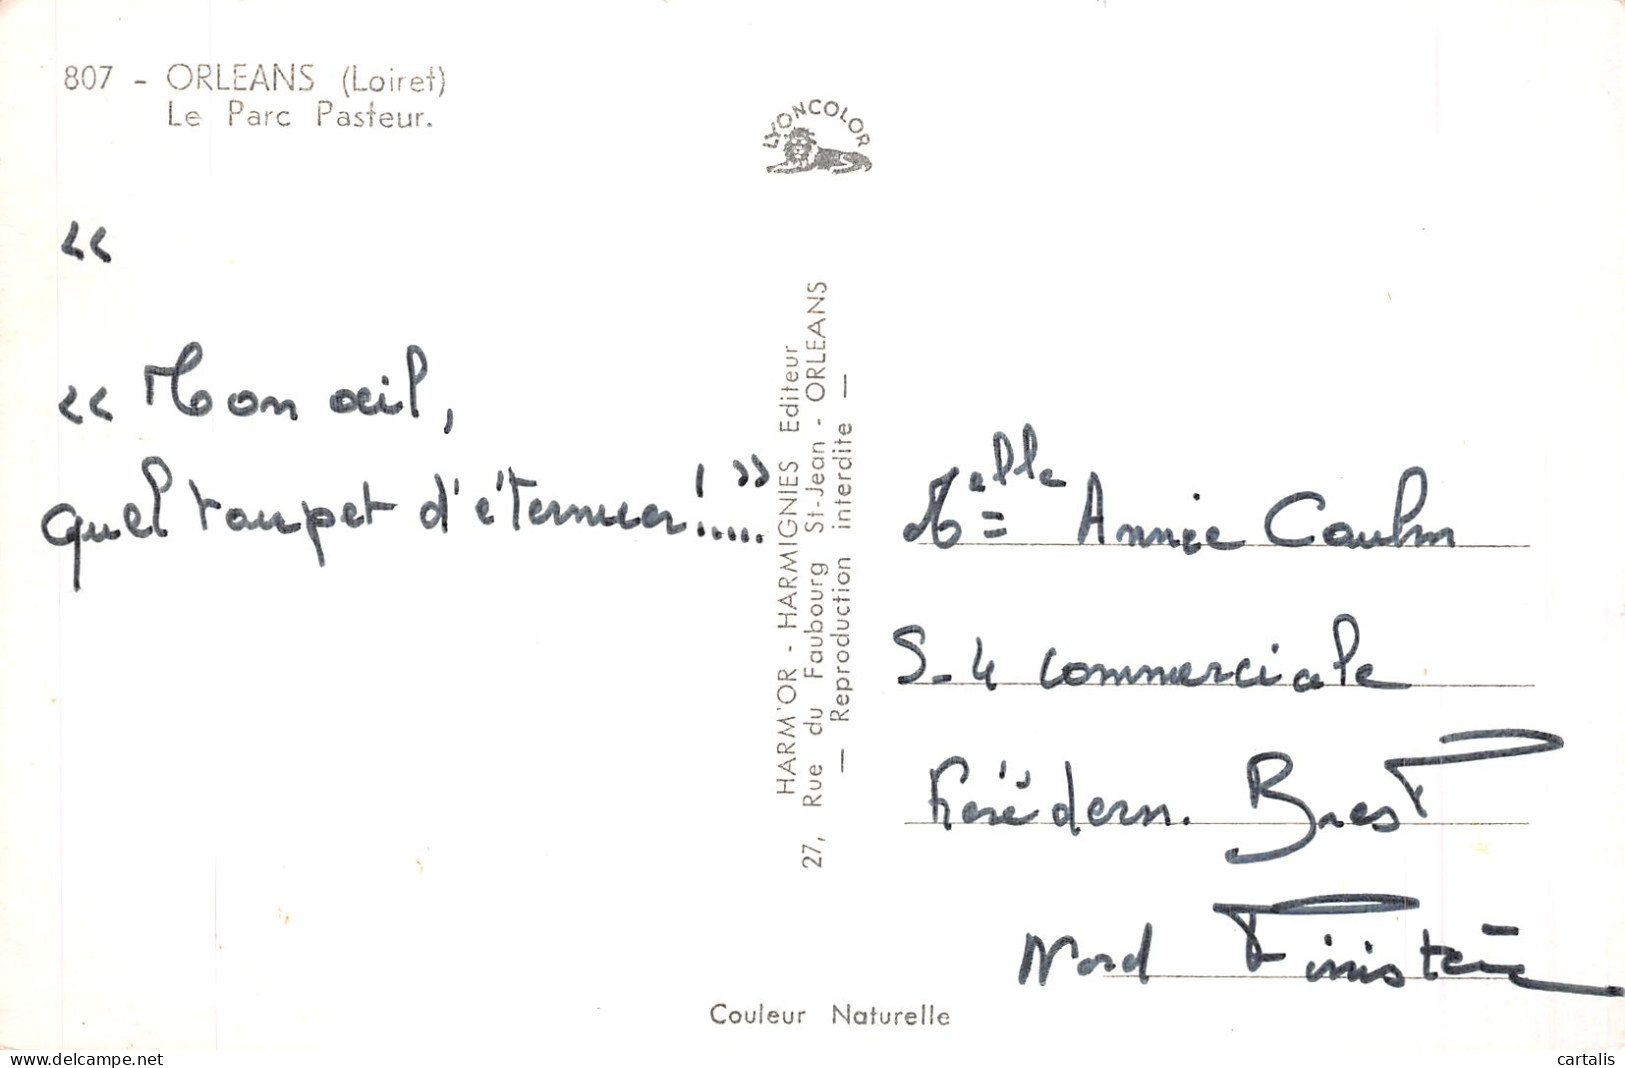 807 - ORLEANS (Loiret)
Le Parc Pasteur.
LYONCOLOR
«
« Mon œil,
quel toupet d'éternuer!..... »
HARM'OR - HARMIGNIES Editeur
27, Rue du Faubourg St-Jean - ORLEANS
— Reproduction interdite —
Melle Annie
S-4 commerciale
Brest
Nord Finistère
Couleur Naturelle
delcampe.net
cartalis